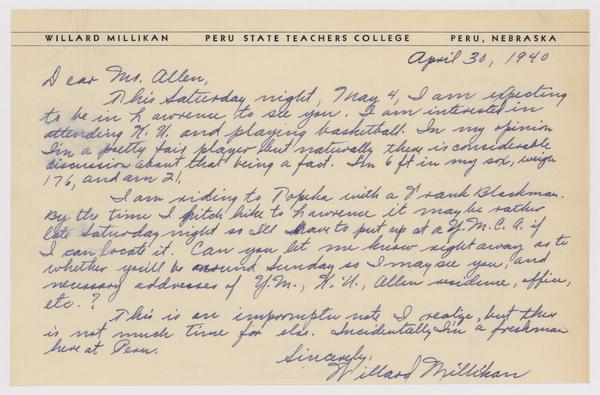 WILLARD MILLIKAN PERU STATE TEACHERS COLLEGE PERU, NEBRASKA
April 30, 1940
Dear Mr. Allen,
This Saturday night, May 4, I am expecting
to be in Lawrence to see you. I am interested in
attending K.U. and playing basketball. In my opinion
I'm a pretty fair player but naturally there is considerable
discussion about that being a fact. I'm 6 ft in my sox, weigh
176, and am 21.
I am riding to Topeka with a Frank Blachman.
By the time I hitch hike to Lawrence it may be rather
late Saturday night so I'll have to put up at a Y.M.C.A. if
I can locate it. Can you let me know right away as to
whether you'll be around Sunday so I may see you, and
necessary addresses of Y.M., K.U., Allen residence, office,
etc.?
This is an impromptu note I realize, but there
is not much time for else. Incidentally I'm a freshman
here at Peru.
Sincerely,
Willard Millikan